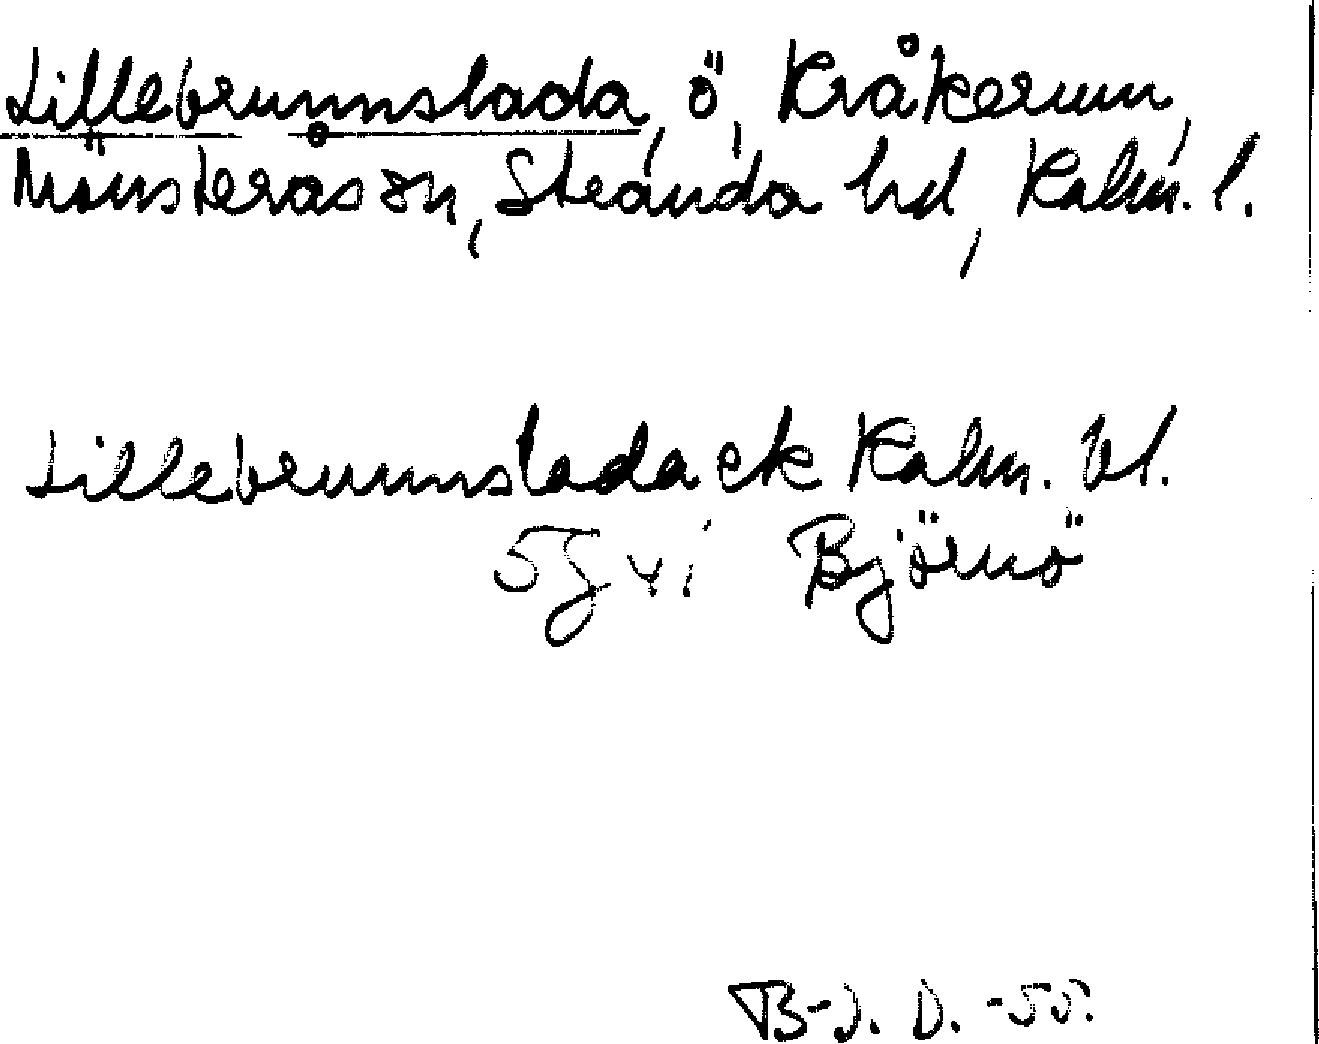 Lillebrunnslada, ö, Kråkerum,
Mönsterås sn, Stranda hd, Kalm. l.
Lillebrunnslada ek Kalm. bl.
5G vi Björnö
B-J. D. -55.